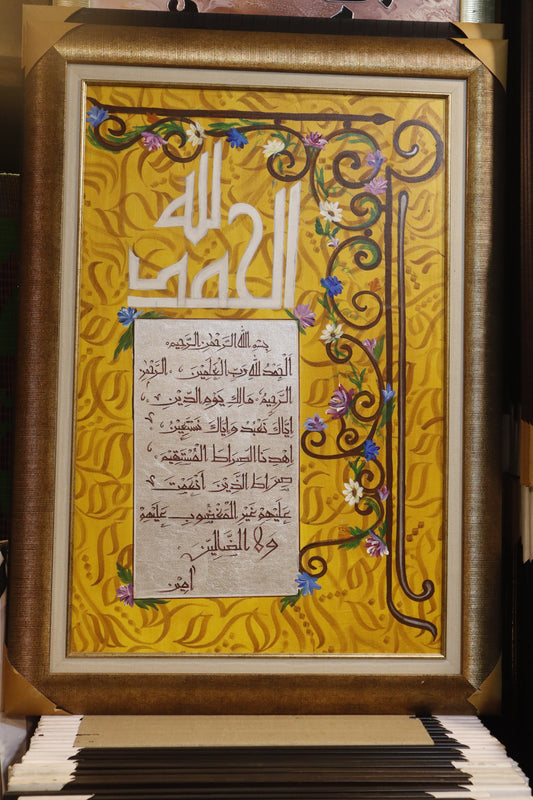 الحمد لله
بسم الله الرحمن الرحيم
الحمد لله رب العلمين . الرحمن
الرحيم . مالك يوم الدين .
اياك نعبد و اياك نستعين .
اهدنا الصراط المستقيم .
صراط الذين انعمت
عليهم غير المغضوب عليهم
و لا الضالين
امين